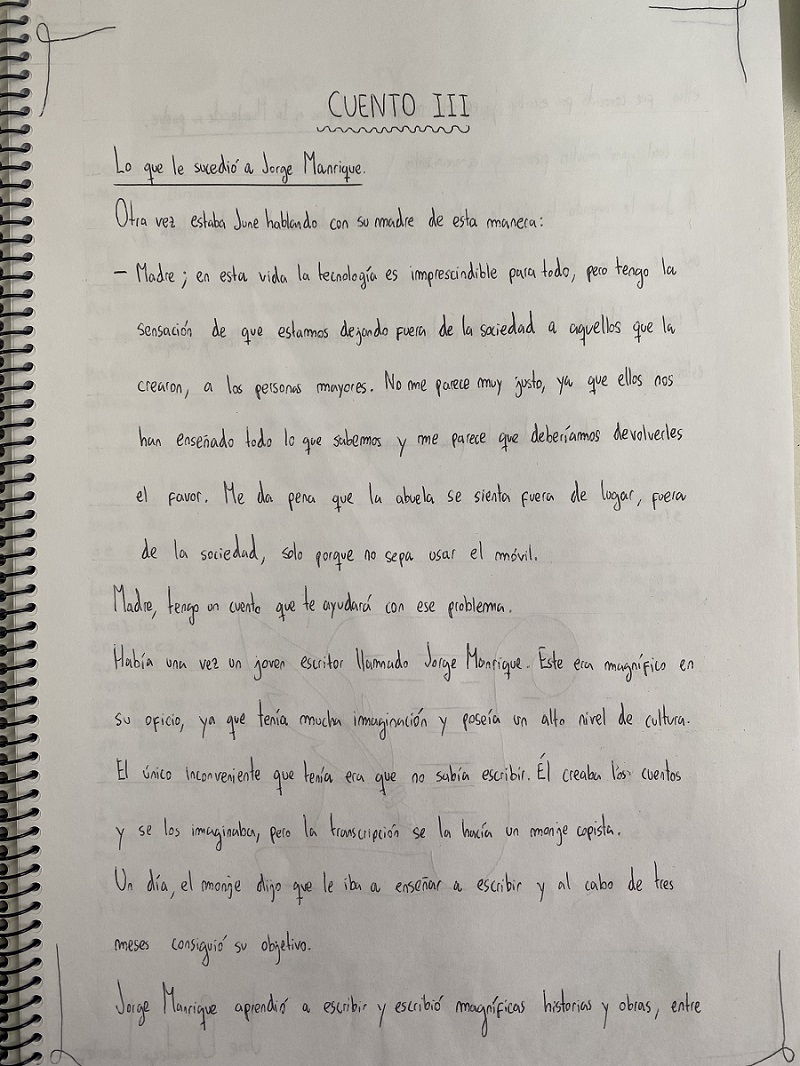 CUENTO III
Lo que le sucedió a Jorge Manrique.
Otra vez estaba June hablando con su madre de esta manera:
– Madre ; en esta vida la tecnología es imprescindible para todo, pero tengo la
sensación de que estarmos dejando fuera de la sociedad a aquellos que la
crearon, a las personas mayores. No me parece muy justo, ya que ellos nos
han enseñado todo lo que sabemos y me parece que deberíamos devolverles
el favor. Me da pena que la abuela se sienta fuera de lugar, fuera
de la sociedad, solo porque no sepa usar el móvil.
Madre, tengo un cuento que te ayudará con ese problema.
Había una vez un joven escritor llamado Jorge Manrique. Este era magnífico en
su oficio, ya que tenía mucha immaginación y poseía un alto nivel de cultura.
El único inconveniente que tenía era que no sabía escribir. Él creaba los cuentos
y se los imaginaba, pero la transcripción se la hacía un monje copista.
Un día, el monje dijo que le iba a enseñar a escribir y al cabo de tres
meses consiguió su objetivo.
Jorge Manrique aprendió a escribir y escribió magníficas historias y obras, entre